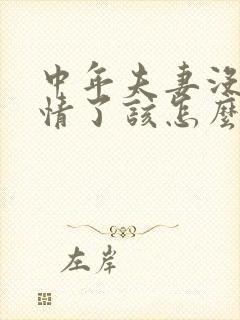 中年夫妻没
情了该怎麼
左岸